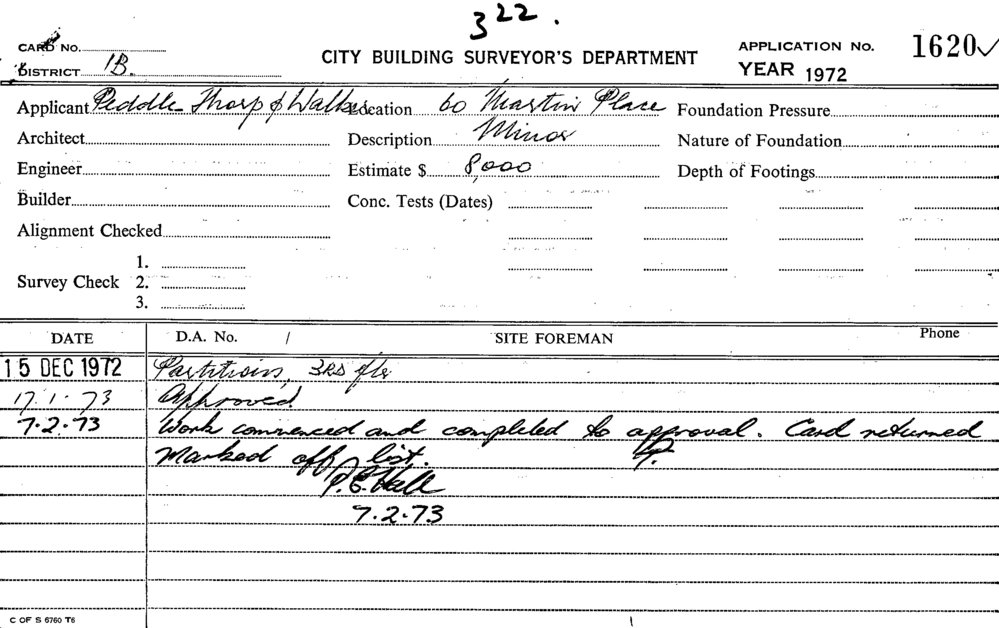 322.
CARD NO.
CITY BUILDING SURVEYOR'S DEPARTMENT
APPLICATION No. 1620✓
DISTRICT 1B.
YEAR 1972
Applicant Peddle Thorp & Walker Location 60 Martin Place Foundation Pressure
Architect Description Minor Nature of Foundation
Engineer Estimate $ 8,000 Depth of Footings
Builder Conc. Tests (Dates)
Alignment Checked
1.
Survey Check 2.
3.
DATE D.A. No. / SITE FOREMAN Phone
15 DEC 1972 Partitions, 3RD flr
17.1.73 Approved
7.2.73 Work commenced and completed to approval. Card returned
Marked off list.
P.E. Hall
7.2.73
C OF S 6760 T6